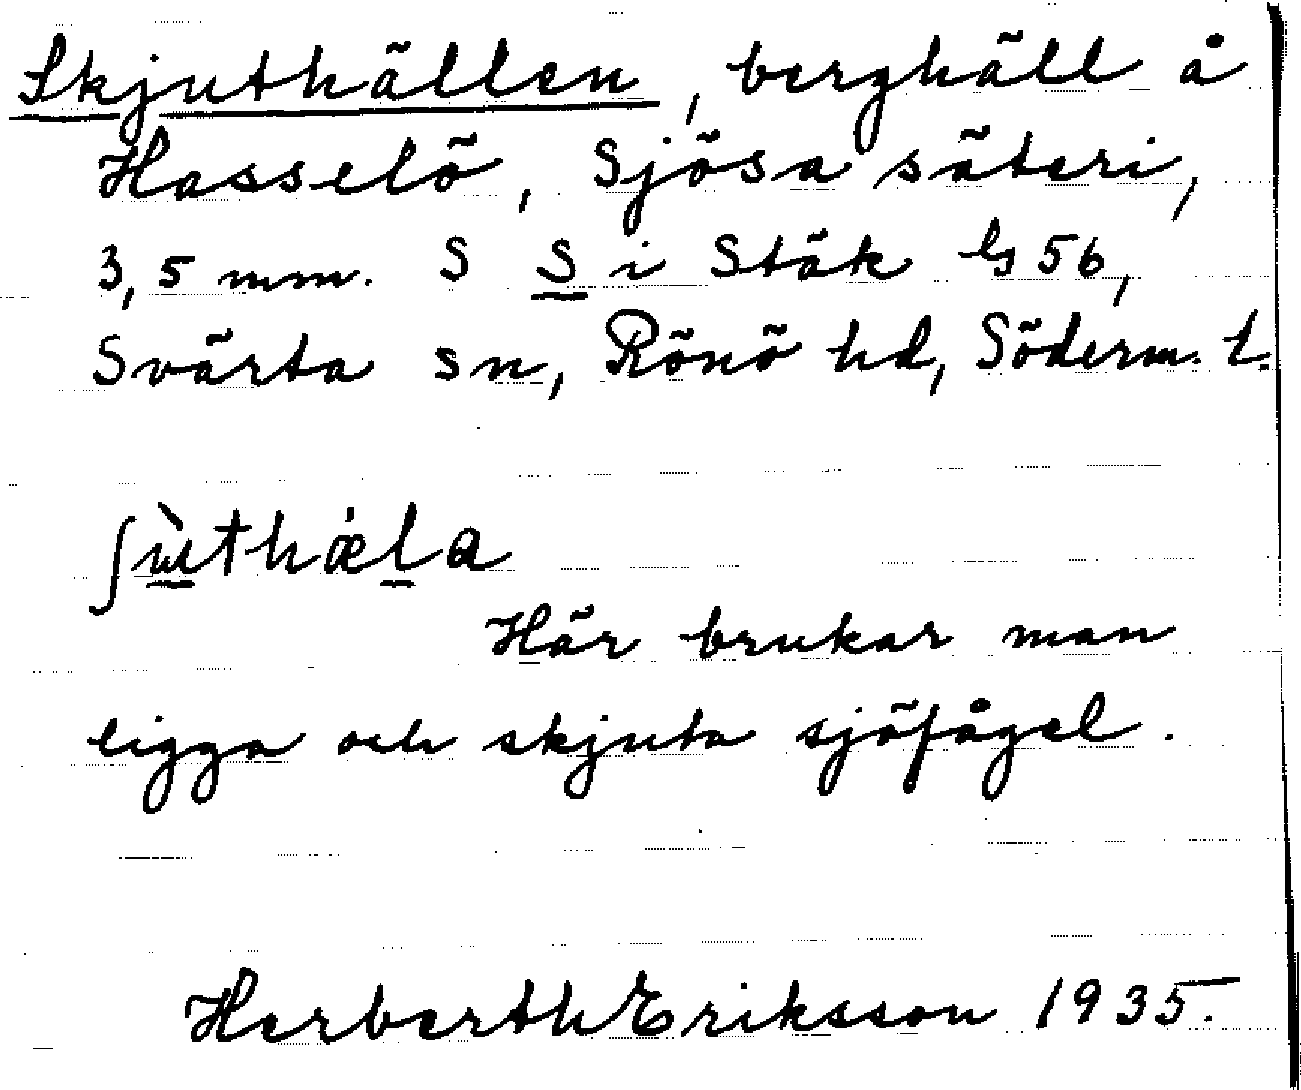 Skjuthällen, berghäll å
Hasselö, Sjösa säteri,
3,5 mm. S S i Stäk G 56,
Svärta sn, Rönö hd, Söderm. l.
ʃùthæ̇la
Här brukar man
ligga och skjuta sjöfågel.
Herberth Eriksson 1935.